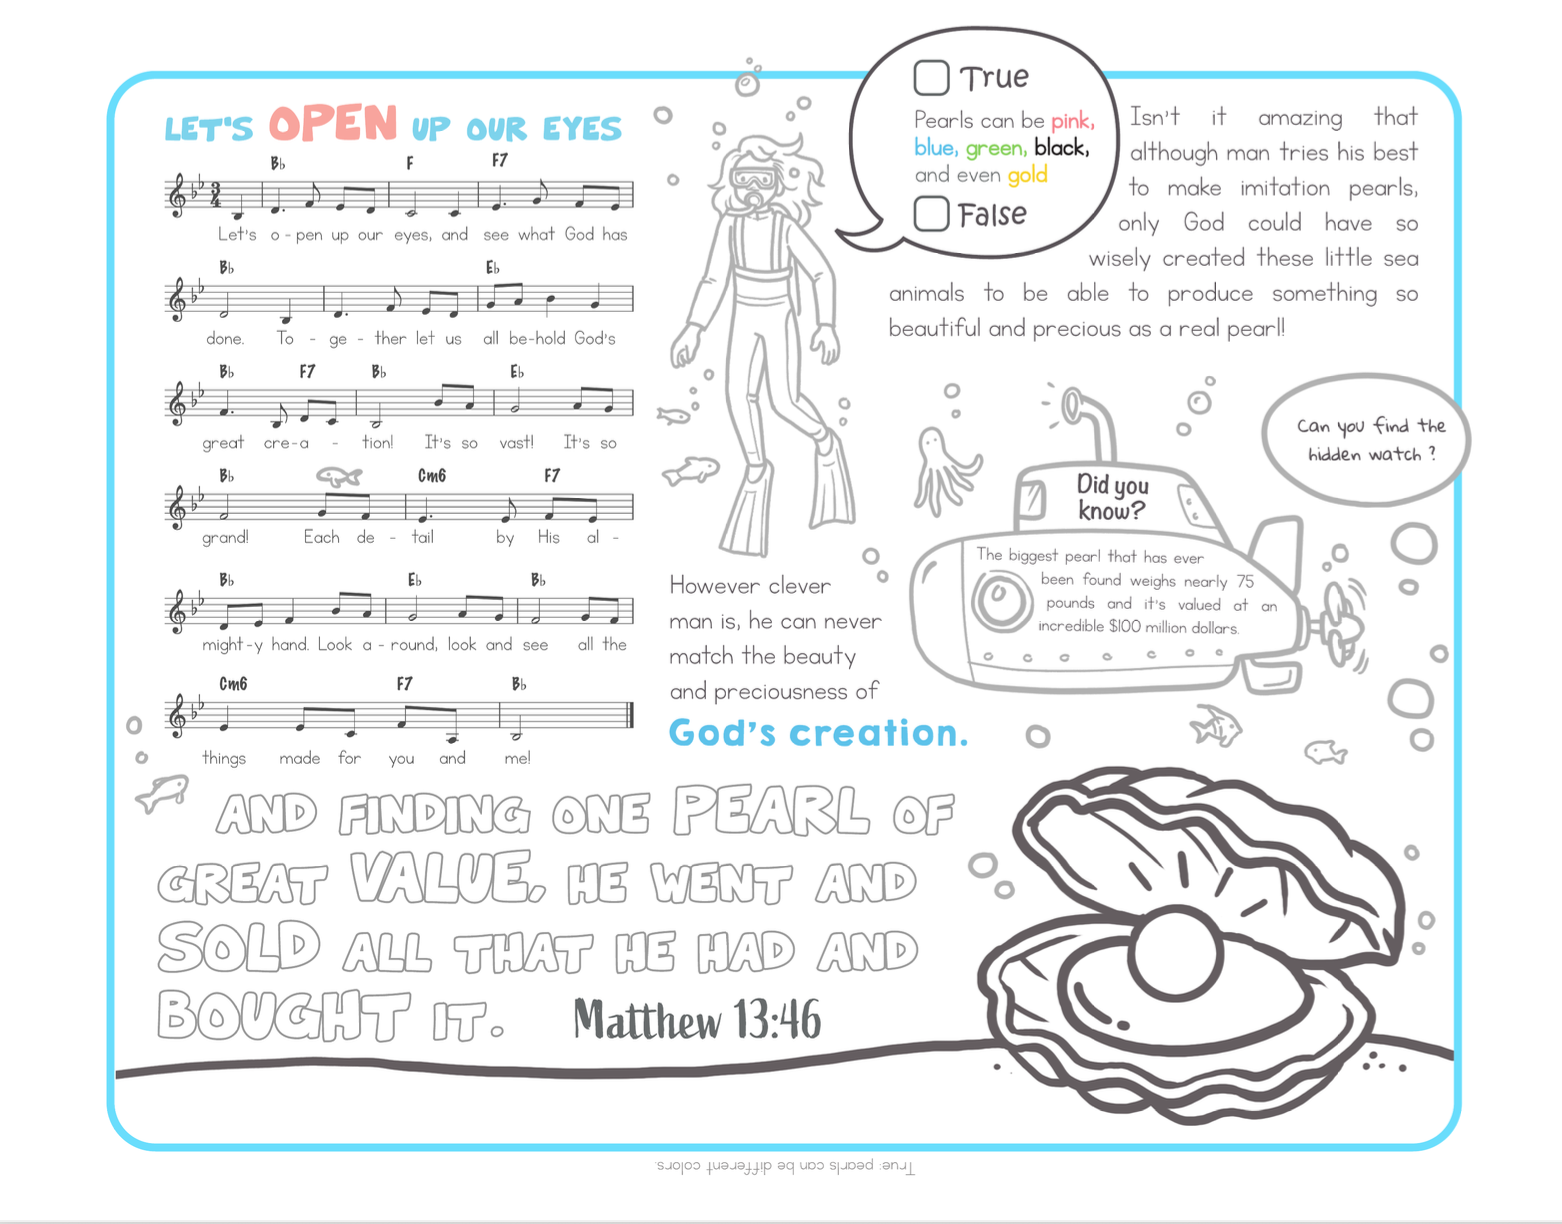 LET'S OPEN UP OUR EYES
B♭ F F7
3
4
Let's o - pen up our eyes, and see what God has
B♭ E♭
done. To - ge - ther let us all be-hold God's
B♭ F7 B♭ E♭
great cre-a - tion! It's so vast! It's so
B♭ Cm6 F7
grand! Each de - tail by His al -
B♭ E♭ B♭
might-y hand. Look a - round, look and see all the
Cm6 F7 B♭
things made for you and me!
True
Pearls can be pink,
blue, green, black,
and even gold
False
Isn't it amazing that
although man tries his best
to make imitation pearls,
only God could have so
wisely created these little sea
animals to be able to produce something so
beautiful and precious as a real pearl!
Can you find the
hidden watch ?
Did you
know?
The biggest pearl that has ever
been found weighs nearly 75
pounds and it's valued at an
incredible $100 million dollars.
However clever
man is, he can never
match the beauty
and preciousness of
God's creation.
AND FINDING ONE PEARL OF
GREAT VALUE, HE WENT AND
SOLD ALL THAT HE HAD AND
BOUGHT IT. Matthew 13:46
True: pearls can be different colors.